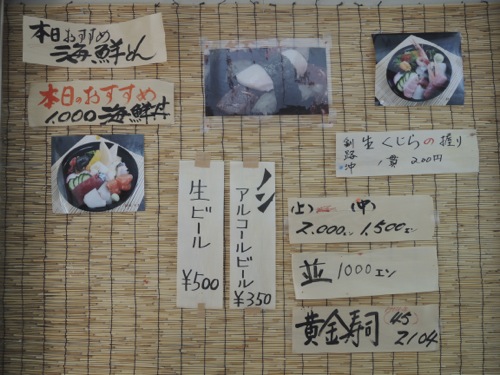 本日おすすめ
海鮮めん
本日のおすすめ
1,000海鮮丼
釧路沖
生くじらの握り
1貫 200円
生ビール
¥500
ノンアルコールビール
¥350
(上) (中)
2,000エン 1,500エン
並 1000エン
黄金寿司
45
2104